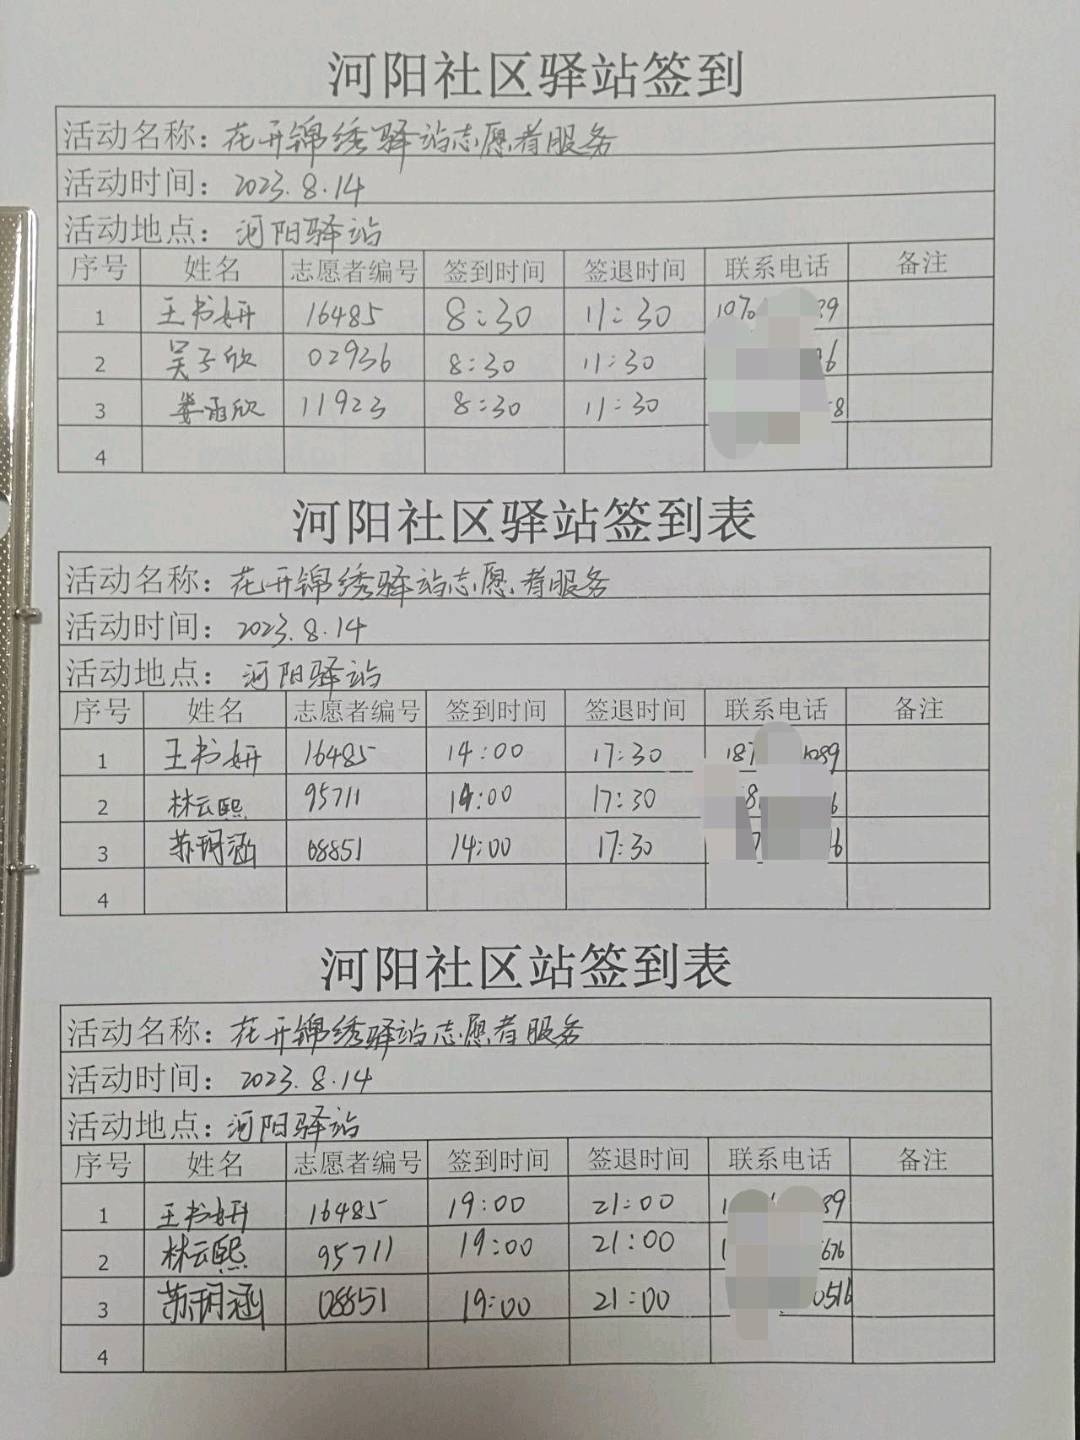 河阳社区驿站签到
活动名称：花开锦绣驿站志愿者服务
活动时间：2023.8.14
活动地点：河阳驿站
序号 姓名 志愿者编号 签到时间 签退时间 联系电话 备注
1 王书妍 16485 8:30 11:30
2 吴子欣 02936 8:30 11:30
3 娄雨欣 11923 8:30 11:30
4
河阳社区驿站签到表
活动名称：花开锦绣驿站志愿者服务
活动时间：2023.8.14
活动地点：河阳驿站
序号 姓名 志愿者编号 签到时间 签退时间 联系电话 备注
1 王书妍 16485 14:00 17:30
2 林云熙 95711 14:00 17:30
3 苏玥涵 08851 14:00 17:30
4
河阳社区站签到表
活动名称：花开锦绣驿站志愿者服务
活动时间：2023.8.14
活动地点：河阳驿站
序号 姓名 志愿者编号 签到时间 签退时间 联系电话 备注
1 王书妍 16485 19:00 21:00
2 林云熙 95711 19:00 21:00
3 苏玥涵 08851 19:00 21:00
4